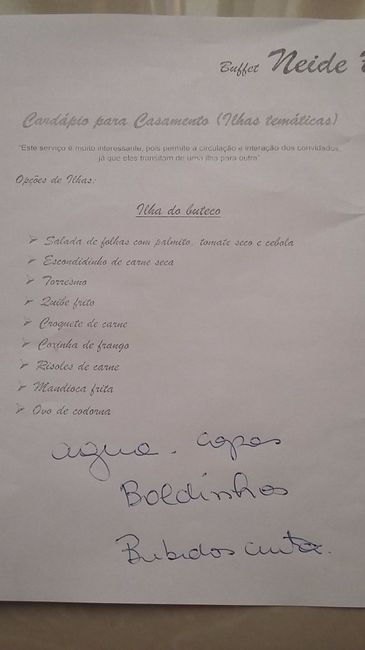 Buffet Neide
Cardápio para Casamento (Ilhas temáticas)
"Este serviço é muito interessante, pois permite a circulação e interação dos convidados,
já que eles transitam de uma ilha para outra"
Opções de Ilhas:
Ilha do buteco
➢ Salada de folhas com palmito, tomate seco e cebola
➢ Escondidinho de carne seca
➢ Torresmo
➢ Quibe frito
➢ Croquete de carne
➢ Coxinha de frango
➢ Risoles de carne
➢ Mandioca frita
➢ Ovo de codorna
agua - copos
Boldinhos
Bubidos